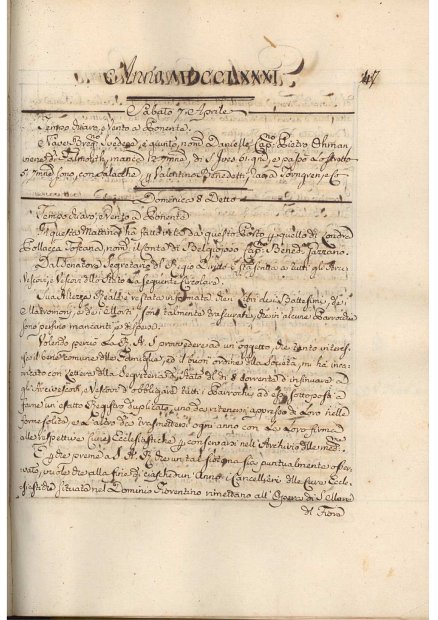 Anno MDCCLXXXI
47
Sabato 7 Aprile
Tempo chiaro, e Vento a Ponente.
Nave Svedese, è giunto, nom.
viene di Falmouth, manca
Domenica 8 Detto
Tempo chiaro, e Vento a Ponente
Questa Mattina ha fatto vela da questo Porto p quello di Londra
Pollacca Toscana, nom. il Conte di Belgiojoso Cap:
Dal Senatore Segretario del Regio Diritto è stata scritta a tutti gli Arci
Vescovi, e Vescovi dello Stato la seguente Circolare.
Sua Altezza Reale è restata informata che i Libri dei Battesimi, dei
Matrimonj, e dei Morti sono talmente trascurati, che in alcune Parrocchie
sono perfino mancanti, e dispersi.
Volendo perciò la R. A. S. provvedere ad un oggetto, che tanto interes
sa il bene comune delle Famiglie, ed il buon ordine della Società, mi ha inca
ricato con Lettera della Segreteria di Stato del dì 3 corrente d'insinuare a
gli Arcivescovi, e Vescovi d'obbligare tutti i Parrochi ad essi sottoposti a
farne un esatto Registro duplicato, uno da ritenersi appresso di Loro nelle
forme solite, e l'altro da trasmettersi ogni anno con la loro firma
alle respettive Curie Ecclesiastiche p conservarsi nell'Archivio delle med:
E p che preme a S. A. R. che un tal sistema sia puntualmente osser
vato, vuole che alla fine di ciaschedun Anno i Cancellieri delle Curie Eccle
siastiche situate nel Dominio Fiorentino rimettano all' Opera di S. Maria
del Fiore